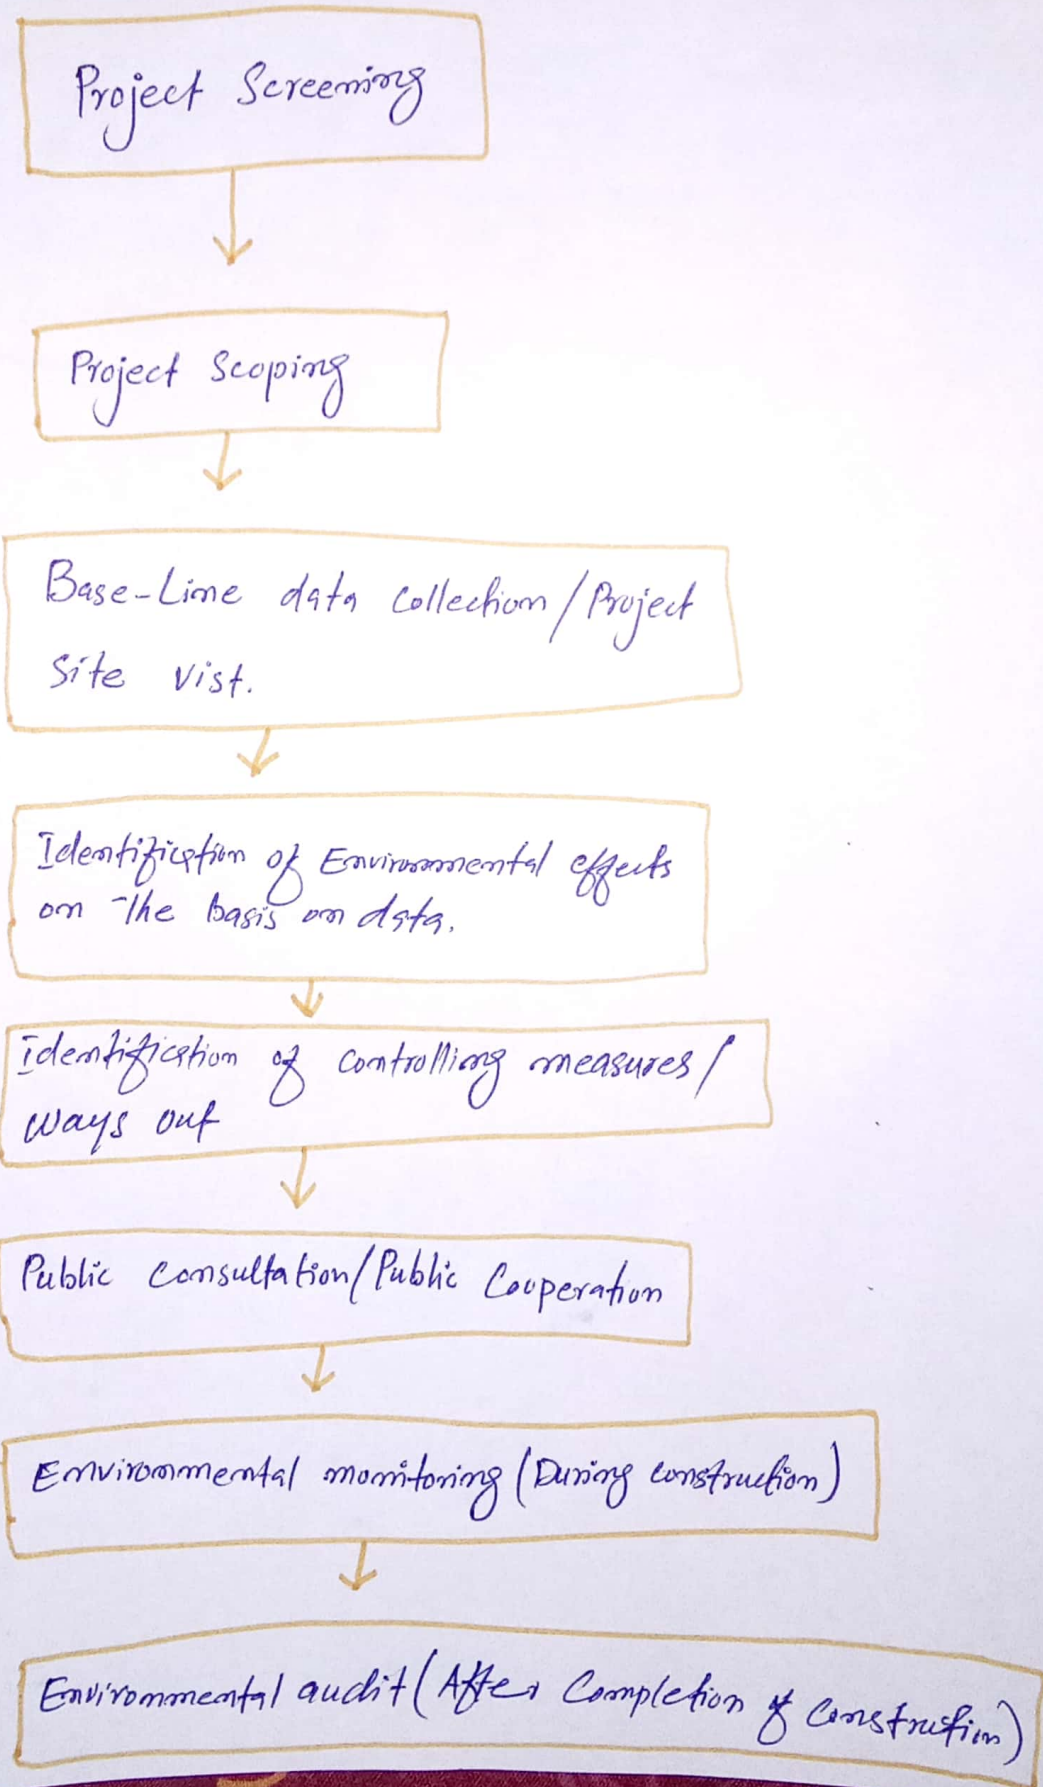 Project Screening
Project Scoping
Base-Line data Collection/Project
Site vist.
Identification of Environmental effects
on The basis on data.
identification of controlling measures/
ways out
Public consultation/Public Cooperation
Environmental monitoring (During construction)
Environmental audit (After Completion of Construction)